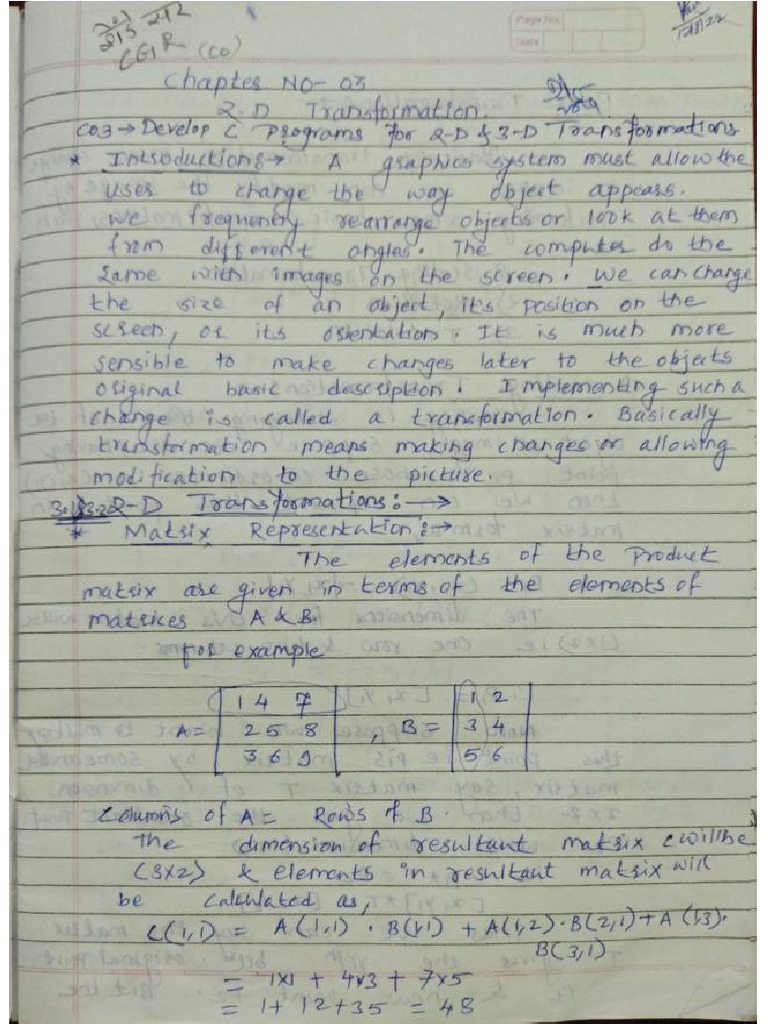 CGR (CO)
Page No.
Date
Chapter No- 03
2-D Transformation.
CO3 → Develop C Programs for 2-D & 3-D Transformations
* Introduction:→ A graphics system must allow the
user to change the way object appears.
We frequenty rearrange objects or look at them
from different angles. The computer do the
same with images on the screen. We can change
the size of an object, it's position on the
screen, or its orientation. It is much more
sensible to make changes later to the objects
original basic description. Implementing such a
change is called a transformation. Basically
transformation means making changes or allowing
modification to the picture.
2-D Transformations:→
* Matrix Representation:→
The elements of the Product
matrix are given in terms of the elements of
matrices A & B.
for example
1 4 7 1 2
A= 2 5 8 , B= 3 4
3 6 9 5 6
Columns of A = Rows of B.
The dimension of resultant matrix C will be
(3x2) & elements in resultant matrix will
be calculated as,
C(1,1) = A(1,1) · B(1,1) + A(1,2)·B(2,1) + A(1,3)·
B(3,1)
= 1x1 + 4x3 + 7x5
= 1 + 12 + 35 = 48